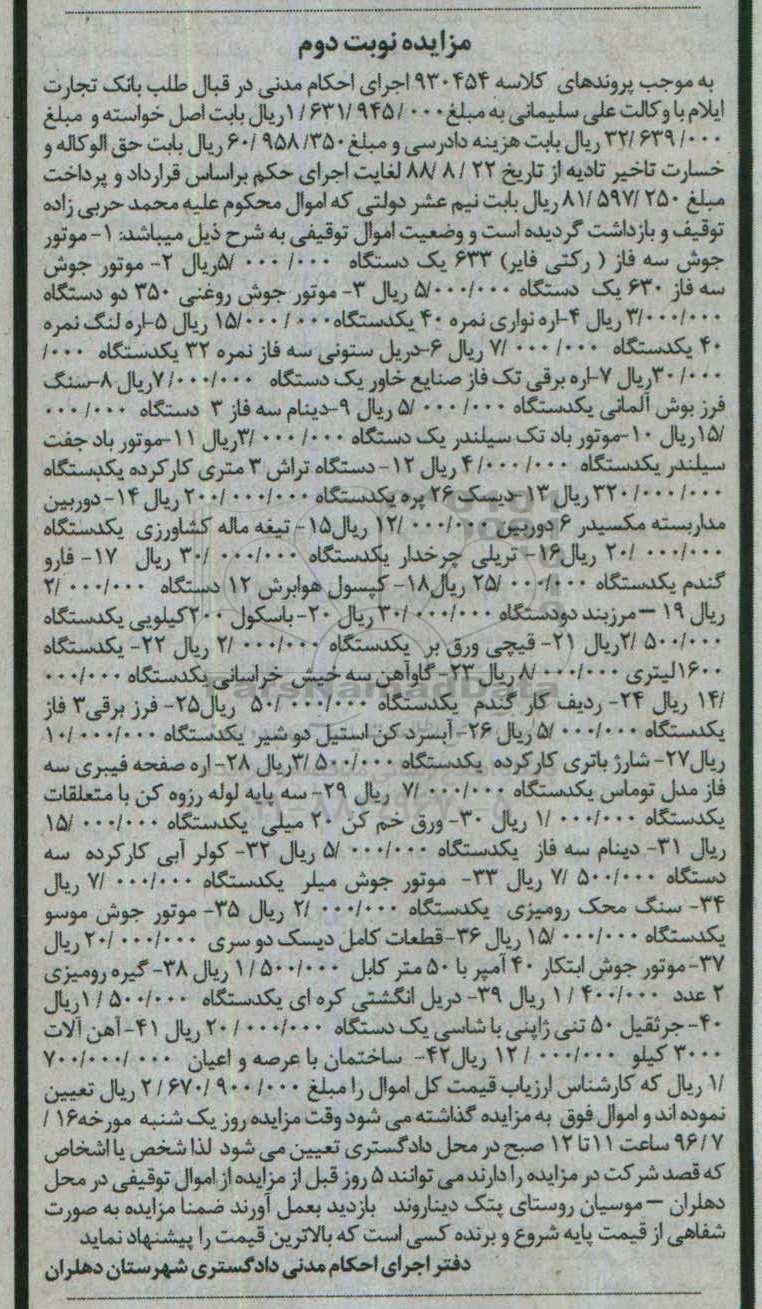 مزایده نوبت دوم
به موجب پروندهای کلاسه ۹۳۰۴۵۴ اجرای احکام مدنی در قبال طلب بانک تجارت
ایلام با وکالت علی سلیمانی به مبلغ ۱/۶۳۱/۹۴۵/۰۰۰ ریال بابت اصل خواسته و مبلغ
۳۲/۶۳۹/۰۰۰ ریال بابت هزینه دادرسی و مبلغ ۶۰/۹۵۸/۳۵۰ ریال بابت حق الوکاله و
خسارت تاخیر تادیه از تاریخ ۸۸/۸/۲۲ لغایت اجرای حکم براساس قرارداد و پرداخت
مبلغ ۸۱/۵۹۷/۲۵۰ ریال بابت نیم عشر دولتی که اموال محکوم علیه محمد حربی زاده
توقیف و بازداشت گردیده است و وضعیت اموال توقیفی به شرح ذیل میباشد: ۱- موتور
جوش سه فاز ( رکتی فایر) ۶۳۳ یک دستگاه ۵/۰۰۰/۰۰۰ریال ۲- موتور جوش
سه فاز ۶۳۰ یک دستگاه ۵/۰۰۰/۰۰۰ ریال ۳- موتور جوش روغنی ۳۵۰ دو دستگاه
۳/۰۰۰/۰۰۰ ریال ۴-اره نواری نمره ۴۰ یکدستگاه۱۵/۰۰۰/۰۰۰ ریال ۵-اره لنگ نمره
۴۰ یکدستگاه ۷/۰۰۰/۰۰۰ ریال ۶-دریل ستونی سه فاز نمره ۳۲ یکدستگاه ۰۰۰/
۳۰/۰۰۰ریال ۷-اره برقی تک فاز صنایع خاور یک دستگاه ۷/۰۰۰/۰۰۰ریال ۸-سنگ
فرز بوش آلمانی یکدستگاه ۵/۰۰۰/۰۰۰ ریال ۹-دینام سه فاز ۳ دستگاه ۰۰۰/۰۰۰
/۱۵ریال ۱۰-موتور باد تک سیلندر یک دستگاه ۳/۰۰۰/۰۰۰ریال ۱۱-موتور باد جفت
سیلندر یکدستگاه ۴/۰۰۰/۰۰۰ ریال ۱۲- دستگاه تراش ۳ متری کارکرده یکدستگاه
۳۲۰/۰۰۰/۰۰۰ ریال ۱۳-دیسک ۲۶ پره یکدستگاه ۲۰۰/۰۰۰/۰۰۰ ریال ۱۴- دوربین
مداربسته مکسیدر ۶ دوربین ۱۲/۰۰۰/۰۰۰ ریال۱۵- تیغه ماله کشاورزی یکدستگاه
۲۰/۰۰۰/۰۰۰ ریال۱۶- تریلی چرخدار یکدستگاه ۳۰/۰۰۰/۰۰۰ ریال ۱۷- فارو
گندم یکدستگاه ۲۵/۰۰۰/۰۰۰ ریال۱۸- کپسول هوابرش ۱۲ دستگاه ۲/۰۰۰/۰۰۰
ریال ۱۹ –مرزبند دودستگاه ۳۰/۰۰۰/۰۰۰ ریال ۲۰-باسکول ۲۰۰کیلویی یکدستگاه
۲/۵۰۰/۰۰۰ریال ۲۱- قیچی ورق بر یکدستگاه ۲/۰۰۰/۰۰۰ ریال ۲۲- یکدستگاه
۱۶۰۰لیتری ۸/۰۰۰/۰۰۰ ریال ۲۳-گاوآهن سه خیش خراسانی یکدستگاه ۰۰۰/۰۰۰
/۱۴ ریال ۲۴- ردیف کار گندم یکدستگاه ۵۰/۰۰۰/۰۰۰ ریال۲۵- فرز برقی۳ فاز
یکدستگاه ۵/۰۰۰/۰۰۰ ریال ۲۶- آبسرد کن استیل دو شیر یکدستگاه ۱۰/۰۰۰/۰۰۰
ریال۲۷- شارژ باتری کارکرده یکدستگاه ۳/۵۰۰/۰۰۰ریال ۲۸- اره صفحه فیبری سه
فاز مدل توماس یکدستگاه ۷/۰۰۰/۰۰۰ ریال ۲۹- سه پایه لوله رزوه کن با متعلقات
یکدستگاه ۱/۰۰۰/۰۰۰ ریال ۳۰- ورق خم کن ۲۰ میلی یکدستگاه ۱۵/۰۰۰/۰۰۰
ریال ۳۱- دینام سه فاز یکدستگاه ۵/۰۰۰/۰۰۰ ریال ۳۲- کولر آبی کارکرده سه
دستگاه ۷/۵۰۰/۰۰۰ ریال ۳۳- موتور جوش میلر یکدستگاه ۷/۰۰۰/۰۰۰ ریال
۳۴- سنگ محک رومیزی یکدستگاه ۲/۰۰۰/۰۰۰ ریال ۳۵- موتور جوش موسو
یکدستگاه ۱۵/۰۰۰/۰۰۰ ریال ۳۶-قطعات کامل دیسک دو سری ۲۰/۰۰۰/۰۰۰ ریال
۳۷-موتور جوش ابتکار ۴۰ آمپر با ۵۰ متر کابل ۱/۵۰۰/۰۰۰ ریال ۳۸- گیره رومیزی
۲ عدد ۱/۴۰۰/۰۰۰ ریال ۳۹- دریل انگشتی کره ای یکدستگاه ۱/۵۰۰/۰۰۰ریال
۴۰-جرثقیل ۵۰ تنی ژاپنی با شاسی یک دستگاه ۲۰/۰۰۰/۰۰۰ ریال ۴۱-آهن آلات
۳۰۰۰ کیلو ۱۲/۰۰۰/۰۰۰ ریال۴۲- ساختمان با عرصه و اعیان ۷۰۰/۰۰۰/۰۰۰
/۱ ریال که کارشناس ارزیاب قیمت کل اموال را مبلغ ۲/۶۷۰/۹۰۰/۰۰۰ ریال تعیین
نموده اند و اموال فوق به مزایده گذاشته می شود وقت مزایده روز یک شنبه مورخه۱۶/
۹۶/۷ ساعت ۱۱تا ۱۲ صبح در محل دادگستری تعیین می شود لذا شخص یا اشخاص
که قصد شرکت در مزایده را دارند می توانند ۵ روز قبل از مزایده از اموال توقیفی در محل
دهلران – موسیان روستای پتک دیناروند بازدید بعمل آورند ضمنا مزایده به صورت
شفاهی از قیمت پایه شروع و برنده کسی است که بالاترین قیمت را پیشنهاد نماید
دفتر اجرای احکام مدنی دادگستری شهرستان دهلران
ParsNamadData